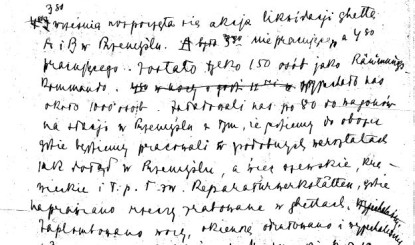 350
września rozpoczęła się akcja likwidacji ghetta
A i B w Przemyślu. A było 350 niepracującego a 450
pracującego. Zostało tylko 150 osób jako Räumungs
Kommando. w nocy o godz. 12 nas
około 1000 osób. Załadowali nas po 80 do wagonów
na stacji w Przemyślu z tym, że pójdziemy do obozu
gdzie będziemy pracowali w podobnych warsztatach
jak dotąd w Przemyślu, a więc szewskie, kra-
wieckie i t.p. t.zw. Reparaturwerkstätten, gdzie
naprawiano rzeczy zrabowane w ghettach.
Zaplombowano wozy, okienka odrutowano i